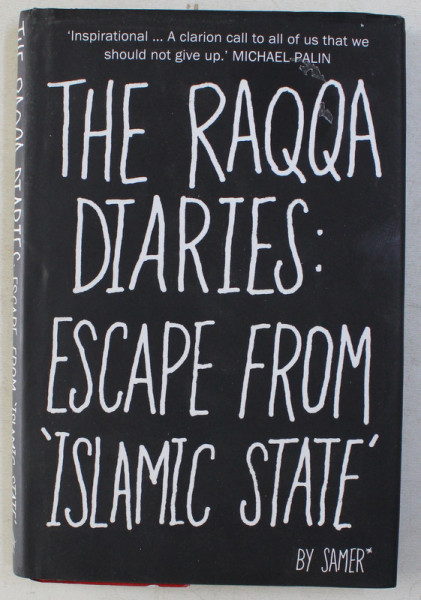 'Inspirational ... A clarion call to all of us that we
should not give up.' MICHAEL PALIN
THE RAQQA
DIARIES:
ESCAPE FROM
'ISLAMIC STATE'
BY SAMER*
THE RAQQA DIARIES: ESCAPE FROM 'ISLAMIC STATE'